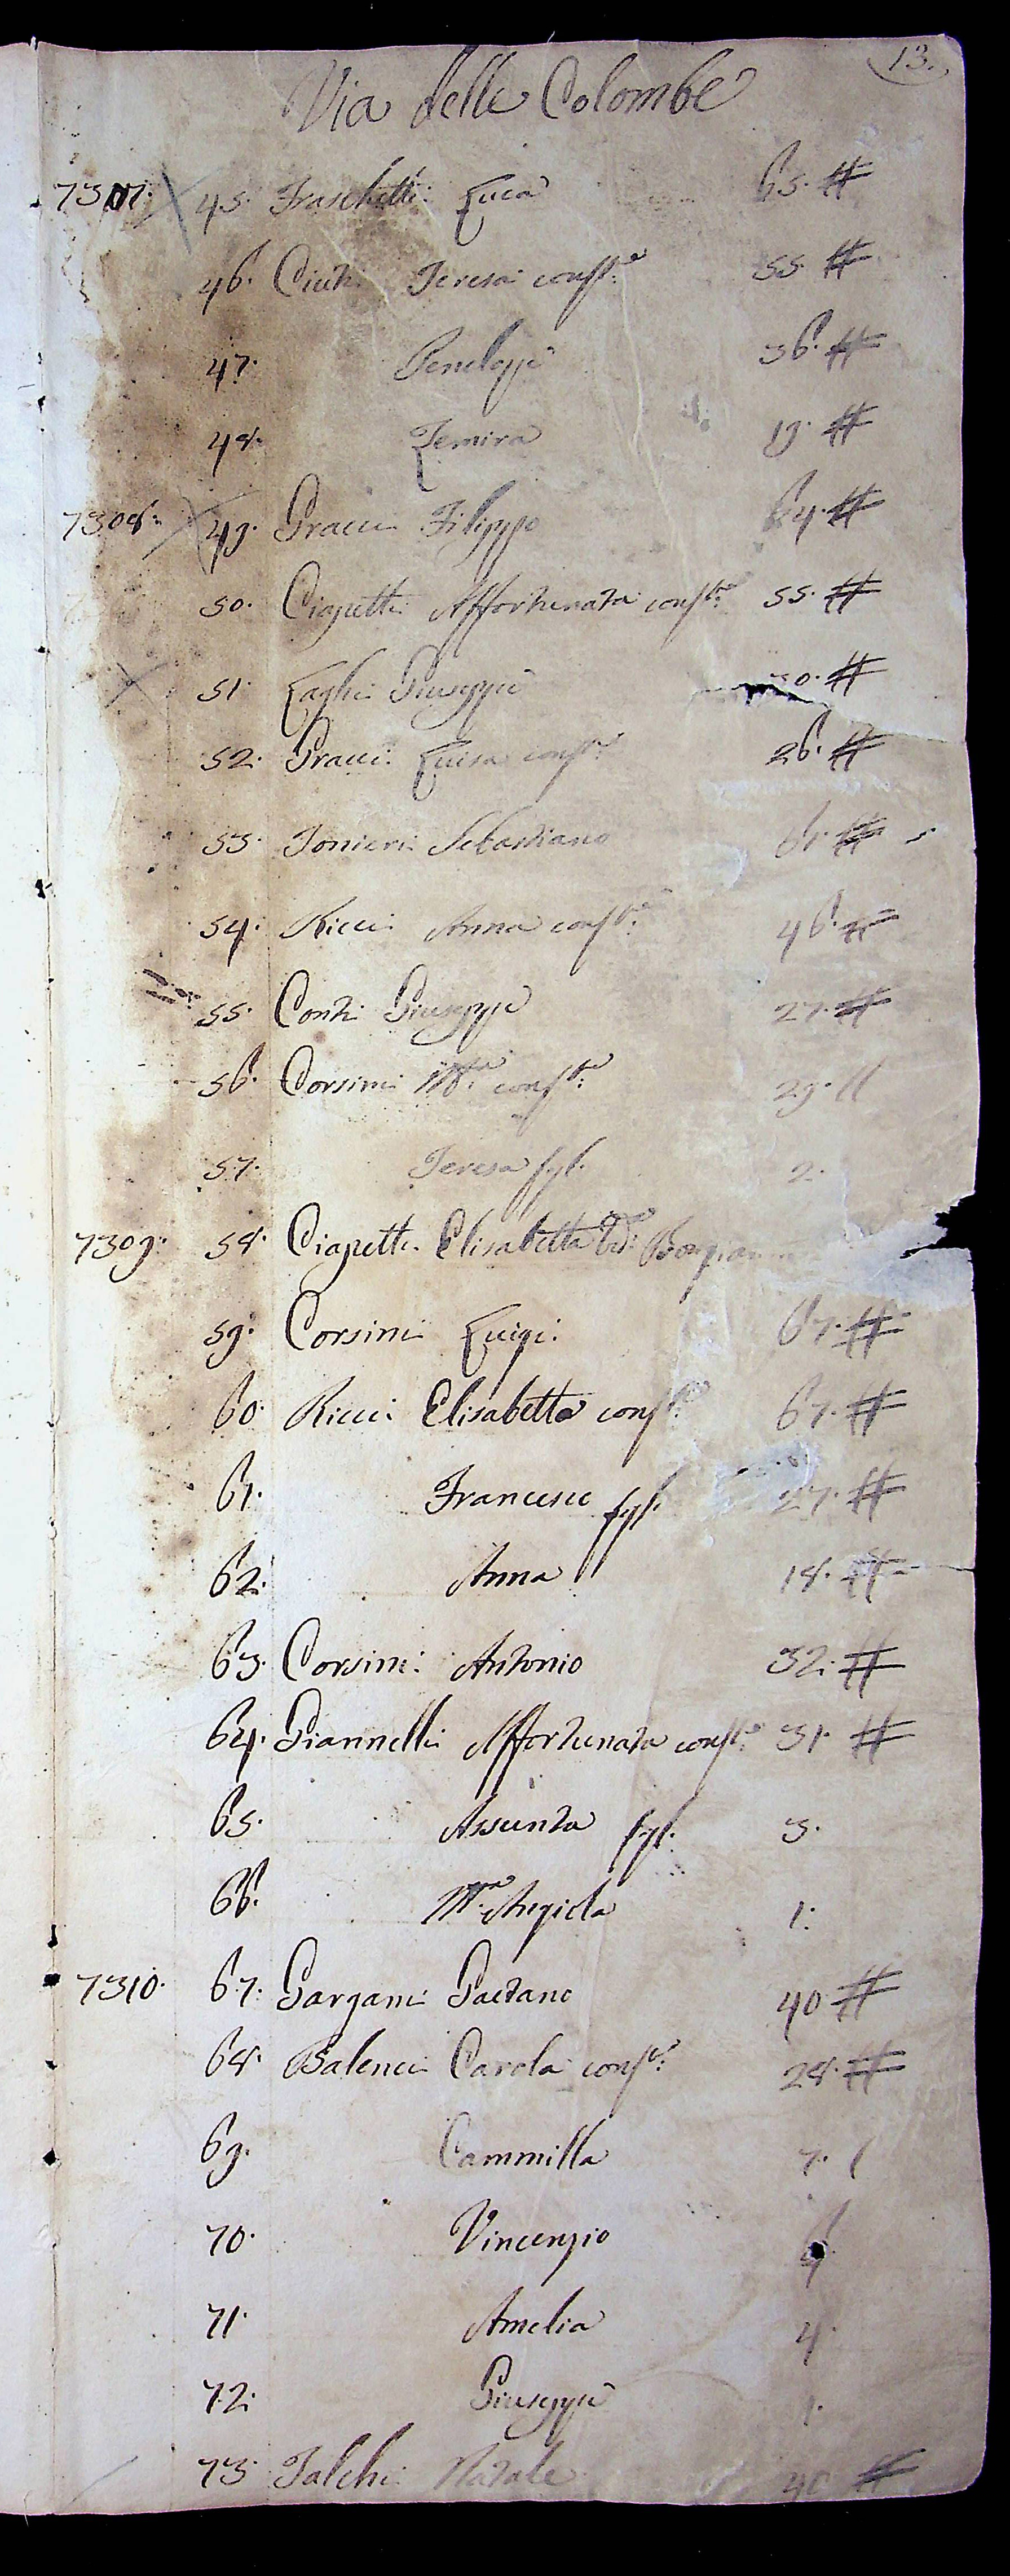 13.
Via delle Colombe
7307. 45. Fraschetti Luca 65. #
46. Ciuti Teresa cons.te 55. #
47. Peneloppe 36. #
48. Zemira 19. #
7308. 49. Gracci Filippo 64. #
50. Ciapetti Affortunata cons.te 55. #
51. Laghi Giuseppe 30. #
52. Gracci Luisa cons.te 26. #
53. Fonieri Sebastiano 61. #
54. Ricci Anna cons.te 46. #
55. Conti Giuseppe 27. #
56. Corsini M.a cons.te 29. //
57. Teresa fgl. 2.
7309. 58. Ciapetti Elisabetta Va.
59. Corsini Luigi 67. #
60. Ricci Elisabetta cons.te 67. #
61. Francesco fgl. 27. #
62. Anna 18. #
63. Corsini Antonio 32. #
64. Giannelli Affortunata cons.te 31. #
65. Assunta fgl. 3.
66. M.a Angiola 1.
7310. 67. Gargani Gaetano 40 #
68. Balenci Carola cons.te 28. #
69. Cammilla 7. /
70. Vincenzio
71. Amelia 4.
72. Giuseppe 1.
73. Falchi Natale 40 #